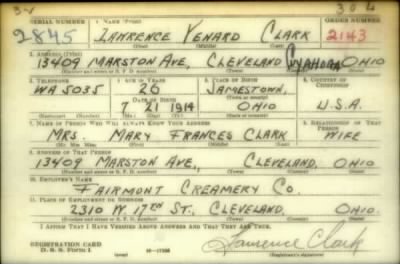 SERIAL NUMBER 1. NAME (Print) ORDER NUMBER
2845 LAWRENCE VENARD CLARK 2143
(First) (Middle) (Last)
2. ADDRESS (Print)
13409 MARSTON AVE, CLEVELAND CUYAHOGA OHIO
(Number and street or R. F. D. number) (Town) (County) (State)
3. TELEPHONE 4. AGE IN YEARS 5. PLACE OF BIRTH 6. COUNTRY OF CITIZENSHIP
WA 5035 26 JAMESTOWN,
DATE OF BIRTH
7 21 1914 OHIO U.S.A.
(Exchange) (Number) (Mo.) (Day) (Yr.) (State or country)
7. NAME OF PERSON WHO WILL ALWAYS KNOW YOUR ADDRESS 8. RELATIONSHIP OF THAT PERSON
MRS. MARY FRANCES CLARK WIFE
(Mr., Mrs., Miss) (First) (Middle) (Last)
9. ADDRESS OF THAT PERSON
13409 MARSTON AVE., CLEVELAND, OHIO
(Number and street or R. F. D. number) (Town) (County) (State)
10. EMPLOYER'S NAME
FAIRMONT CREAMERY CO.
11. PLACE OF EMPLOYMENT OR BUSINESS
2310 W 17TH ST., CLEVELAND, OHIO.
(Number and street or R. F. D. number) (Town) (County) (State)
I AFFIRM THAT I HAVE VERIFIED ABOVE ANSWERS AND THAT THEY ARE TRUE.
REGISTRATION CARD
D. S. S. FORM 1 Lawrence Clark
(Registrant's signature)